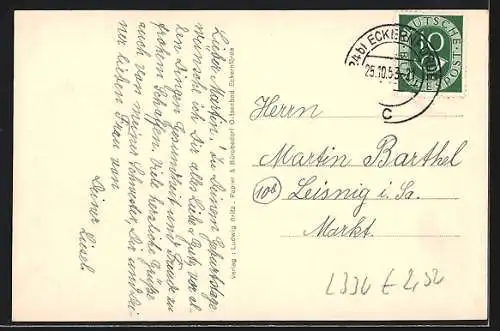 Lieber Martin! Zu Deinem Geburtstage
wünsche ich Dir alles Liebe & Gute, vor al-
len Dingen Gesundheit und Freude zu
frohem Schaffen. Viele herzliche Grüße
auch von meiner Schwester, Dir und Dei-
ner lieben Frau von
Deiner Liesel
Verlag: Ludwig
Ostseebad Eckernförde
(24b) ECKER
25.10.53
C
DEUTSCHE POST
10
Herrn
Martin Barthel
(10b) Leisnig i. Sa.
Markt.